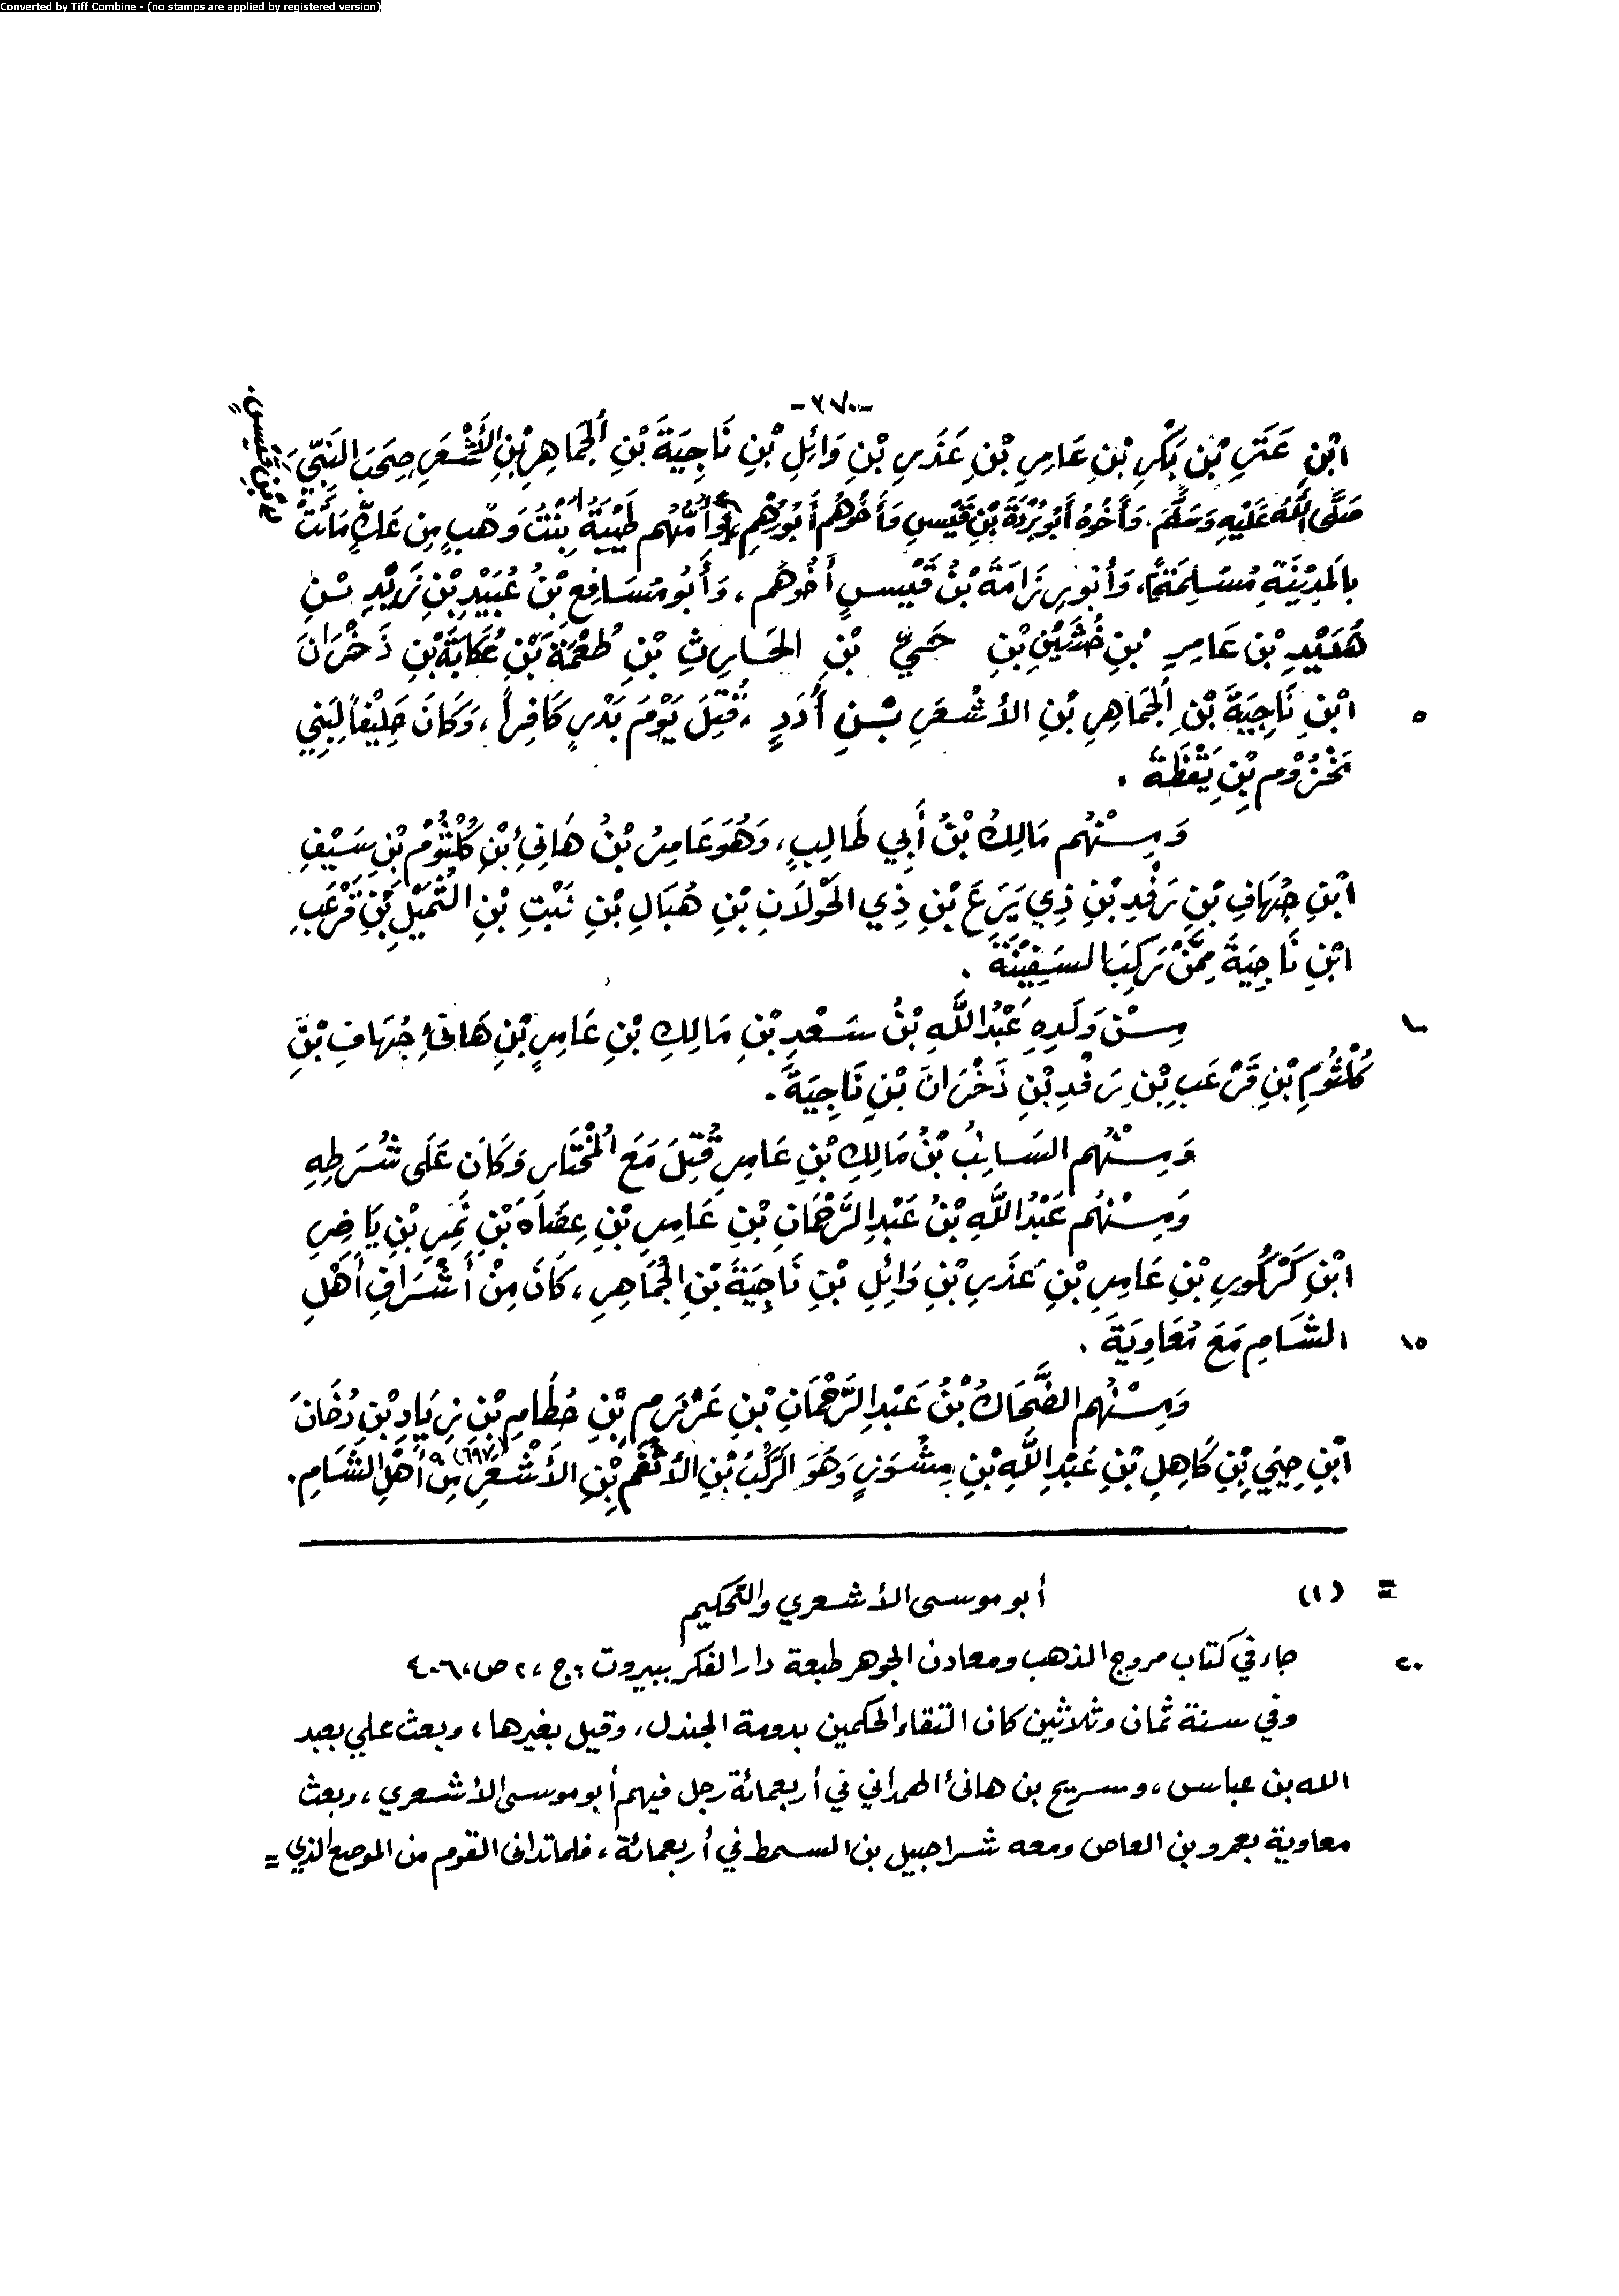 Converted by Tiff Combine - (no stamps are applied by registered version)
-٣٧٠-
ابْنِ عَتَرِ بْنِ بَكْرِ بْنِ عَامِرِ بْنِ عَذَرِ بْنِ وَائِلِ بْنِ نَاجِيَةَ بْنِ الجَمَاهِرِ بْنِ الأَشْعَرِ صَحِبَ النَبِيَّ
صَلَّى اللَّهُ عَلَيْهِ وَسَلَّمَ، وَأَخُوهُ أَبُو بُرْدَةَ بْنُ قَيْسٍ وَأَخُوهُم أَبُو رُهْمِ، وَأُمُّهُم طَيْبَةُ بِنْتُ وَهْبٍ مِن عَكٍّ مَاتَتْ
بْنُ قَيْسٍ.
بِالمَدِيْنَةِ مُسْلِمَةً، وَأَبُو رِزَامَةَ بْنُ قَيْسٍ أَخُوهُم، وَأَبُو مُسَافِعِ بْنُ عُبَيْدِ بْنِ زَيْدِ بْنِ
هُدَيْدِ بْنِ عَامِرِ بْنِ خُشَيْنِ بْنِ حَيِّ بْنِ الحَارِثِ بْنِ طُعْمَةَ بْنِ عُكَابَةَ بْنِ ذَخْرَانَ
٥ ابْنِ نَاجِيَةَ بْنِ الجَمَاهِرِ بْنِ الأَشْعَرِ بْنِ أُدَدٍ، قُتِلَ يَوْمَ بَدْرٍ كَافِراً، وَكَانَ حَلِيْفاً لِبَنِي
مَخْزُوْمِ بْنِ يَقَظَةَ .
وَمِنْهُم مَالِكُ بْنُ أَبِي طَالِبٍ، وَهُوَ عَامِرُ بْنُ هَانِئِ بْنِ كُلْثُوْمِ بْنِ سَيْفِ
ابْنِ جُهَافِ بْنِ رَفْدِ بْنِ ذِي يَرَعَ بْنِ ذِي الحَوْلَانِ بْنِ هُبَالِ بْنِ نَبْتِ بْنِ الثُّمَيْلِ بْنِ قَرْعَبِ
ابْنِ نَاجِيَةَ مِمَّنْ رَكِبَ السَفِيْنَةَ .
١٠ مِنْ وَلَدِهِ عَبْدُ اللَّهِ بْنُ سَعْدِ بْنِ مَالِكِ بْنِ عَامِرِ بْنِ هَانِئِ جُهَافِ بْنِ
كُلْثُومِ بْنِ قَرْعَبِ بْنِ رَفْدِ بْنِ ذَخْرَانَ بْنِ نَاجِيَةَ .
وَمِنْهُم السَائِبُ بْنُ مَالِكِ بْنِ عَامِرِ قُتِلَ مَعَ المُخْتَارِ وَكَانَ عَلَى شُرَطِهِ
وَمِنْهُم عَبْدُ اللَّهِ بْنُ عَبْدِ الرَّحْمَانِ بْنِ عَامِرِ بْنِ عِضَاهَ بْنِ نَمِرِ بْنِ يَاضِرِ
ابْنِ كَرْكُورِ بْنِ عَامِرِ بْنِ عَذَرِ بْنِ وَائِلِ بْنِ نَاجِيَةَ بْنِ الجُمَاهِرِ، كَانَ مِنْ أَشْرَافِ أَهْلِ
١٥ الشَامِ مَعَ مُعَاوِيَةَ .
وَمِنْهُم الضَّحَاكُ بْنُ عَبْدِ الرَّحْمَانِ بْنِ عَرْزَمِ بْنِ حُطَامِ بْنِ زِيَادِ بْنِ دُخَانَ
ابْنِ حِيَيِ بْنِ كَاهِلِ بْنِ عَبْدِ اللَّهِ بْنِ وَهُوَ الرَّكْبُ بْنِ الأَنْعَمِ بْنِ الأَشْعَرِ (٦٩٧) مِنْ أَهْلِ الشَامِ.
= (١) أبو موسى الأشعري والتحكيم
٢٠ جاء في كتاب مروج الذهب ومعادن الجوهر طبعة دار الفكر ببيروت: ج، ٢ ص، ٤٠٦
وفي سنة ثمان وثلاثين كان التقاء الحكمين بدومة الجندل، وقيل بغيرها، وبعث علي بعبد
الله بن عباس، وسريح بن هانئ الهمداني في أربعمائة رجل فيهم أبو موسى الأشعري، وبعث
معاوية بعمرو بن العاص ومعه شراحبيل بن السمط في أربعمائة، فلما تدانى القوم من الموضع الذي =